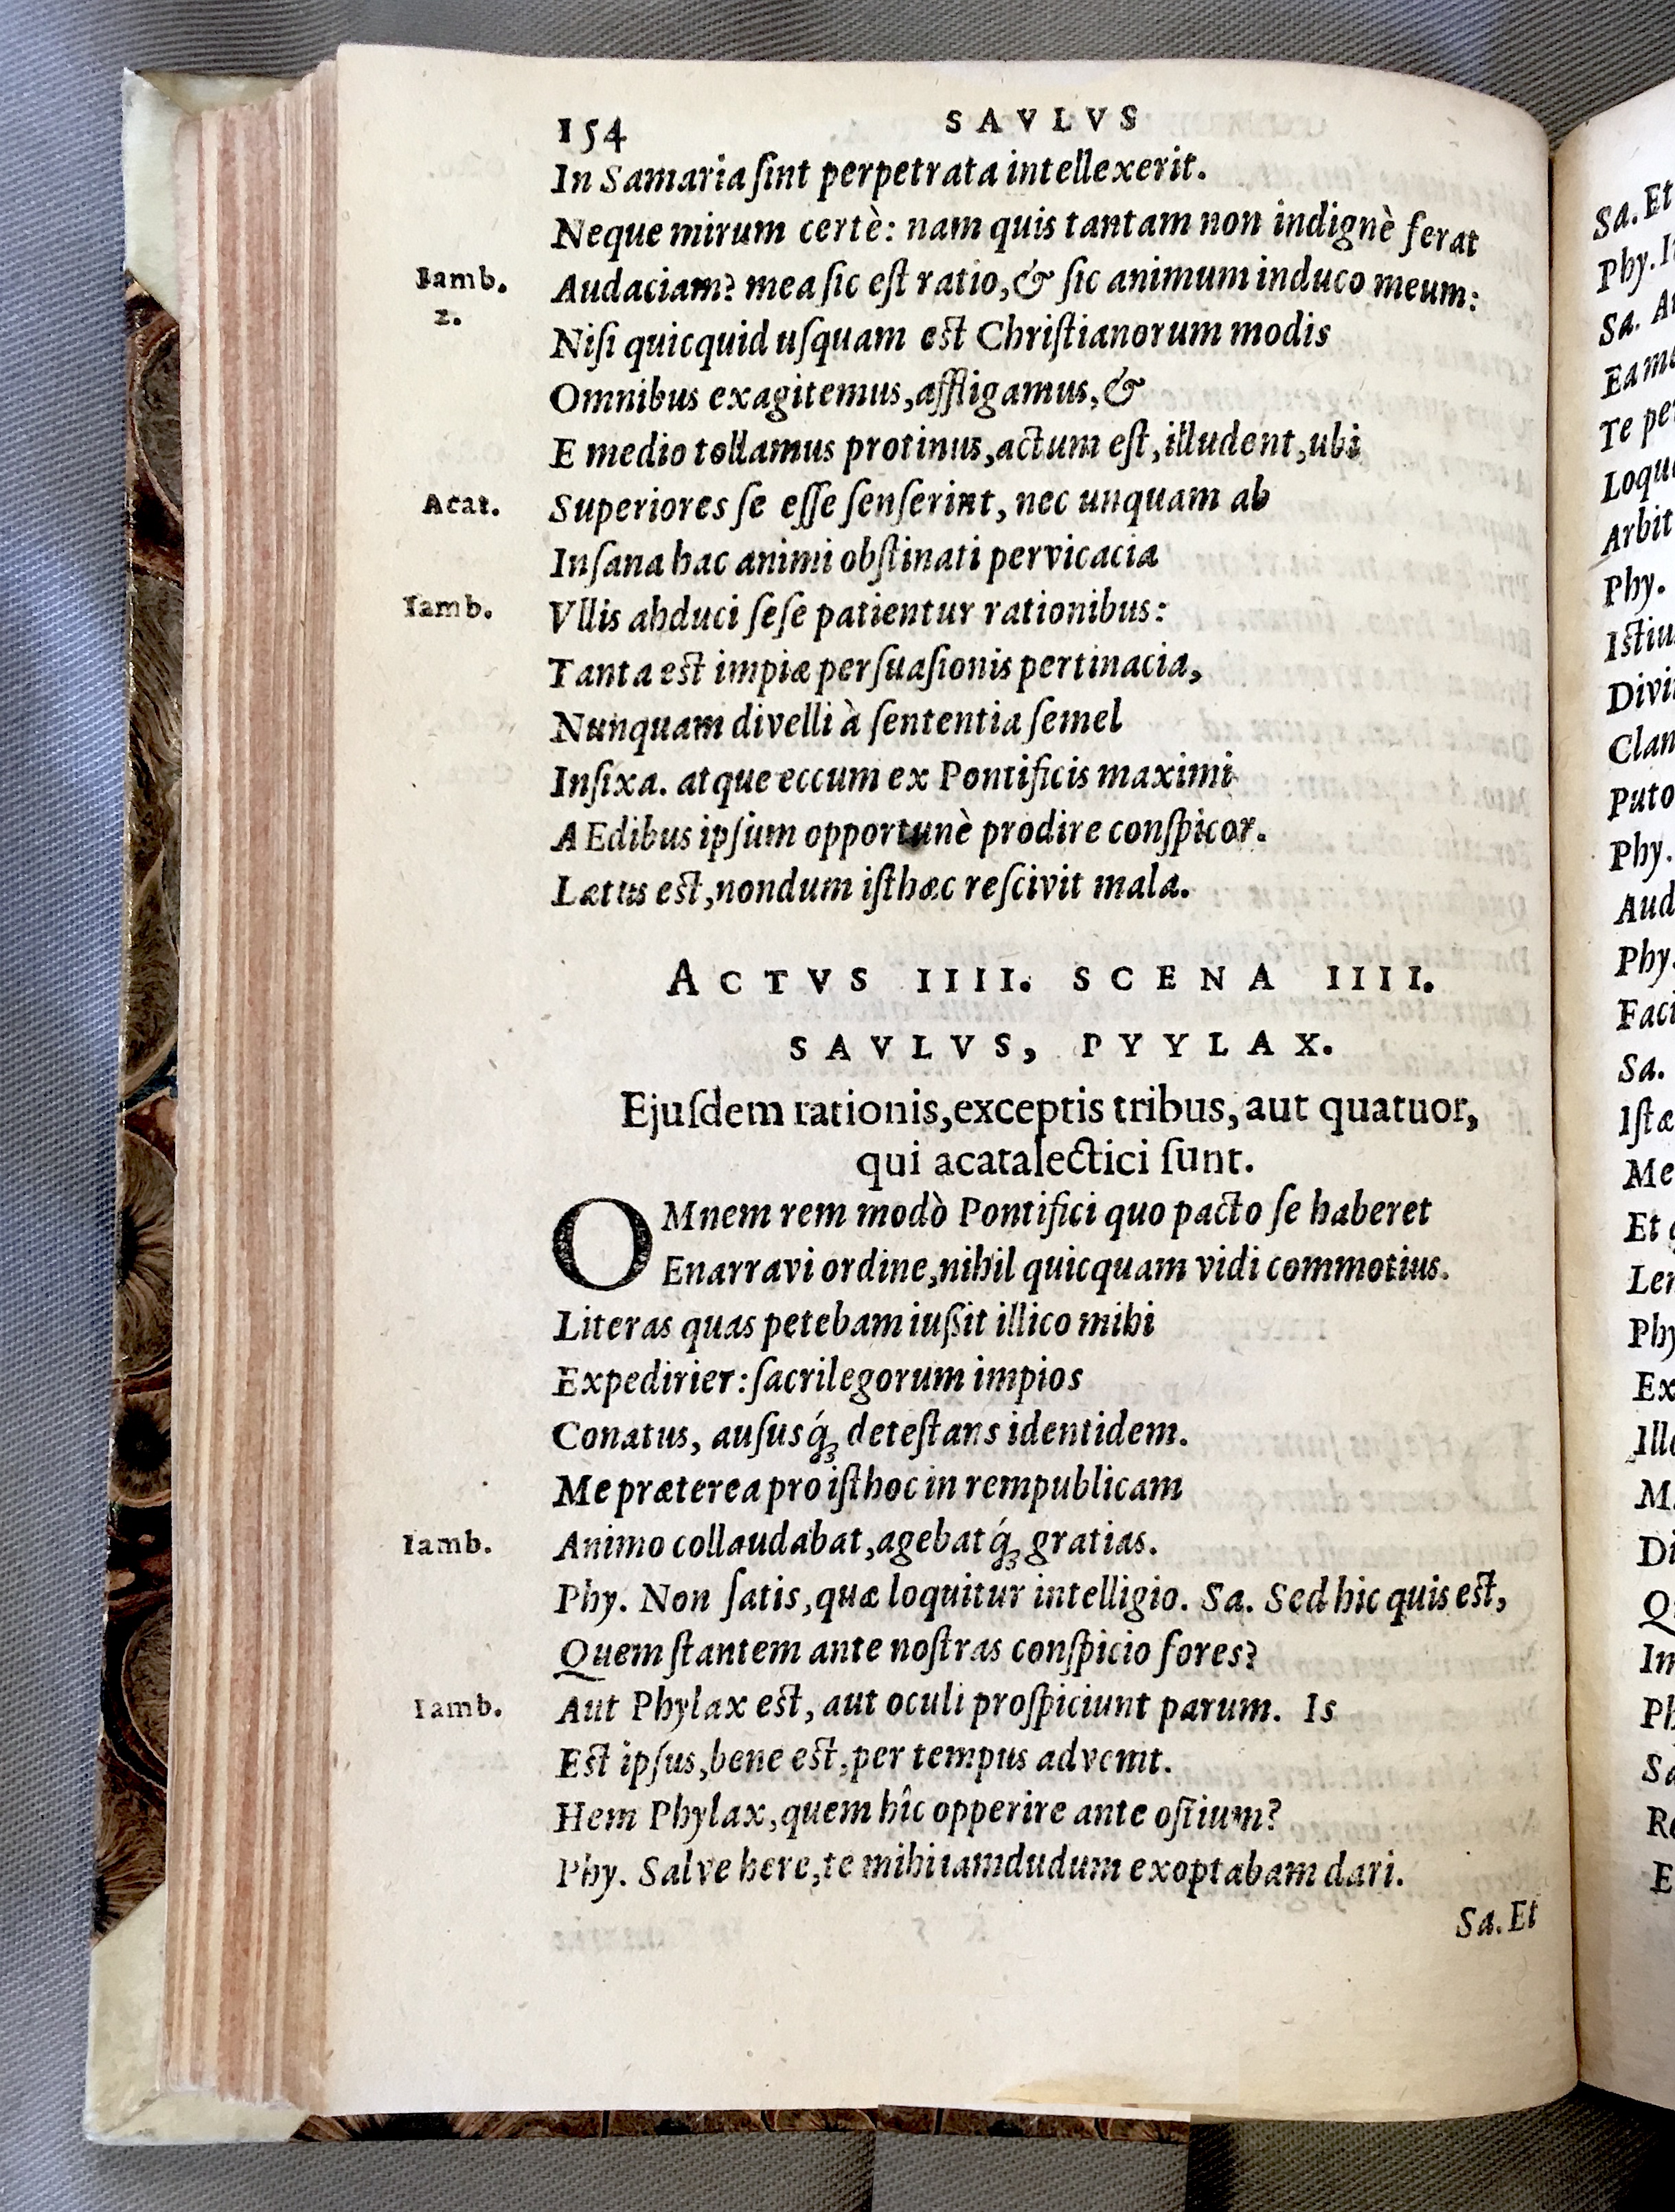 154 SAVLVS
In Samaria ſint perpetrata intellexerit.
Neque mirum certè: nam quis tantam non indignè ferat
Iamb. 2. Audaciam? mea ſic eſt ratio, & ſic animum induco meum:
Niſi quicquid uſquam eſt Chriſtianorum modis
Omnibus exagitemus, affligamus, &
E medio tollamus protinus, actum eſt, illudent, ubi
Acat. Superiores ſe eſſe ſenſerint, nec unquam ab
Inſana hac animi obſtinati pervicacia
Iamb. Vllis abduci ſeſe patientur rationibus:
Tanta eſt impiæ perſuaſionis pertinacia,
Nunquam divelli à ſententia ſemel
Infixa. atque eccum ex Pontificis maximi
AEdibus ipſum opportunè prodire conſpicor.
Lætus eſt, nondum iſthæc reſcivit mala.
ACTVS IIII. SCENA IIII.
SAVLVS, PYYLAX.
Ejuſdem rationis, exceptis tribus, aut quatuor,
qui acatalectici ſunt.
OMnem rem modò Pontifici quo pacto ſe haberet
Enarravi ordine, nihil quicquam vidi commotius.
Literas quas petebam iußit illico mihi
Expedirier: ſacrilegorum impios
Conatus, auſusq́; deteſtans identidem.
Me præterea pro iſthoc in rempublicam
Iamb. Animo collaudabat, agebatq́; gratias.
Phy. Non ſatis, quæ loquitur intelligio. Sa. Sed hic quis eſt,
Quem ſtantem ante noſtras conſpicio fores?
Iamb. Aut Phylax eſt, aut oculi proſpiciunt parum. Is
Eſt ipſus, bene eſt, per tempus advenit.
Hem Phylax, quem hîc opperire ante oſtium?
Phy. Salve here, te mihi iamdudum exoptabam dari.
Sa. Et
Sa. Et
Phy.
Sa.
Te
Phy.
Phy.
Phy.
Sa.
Me
Et